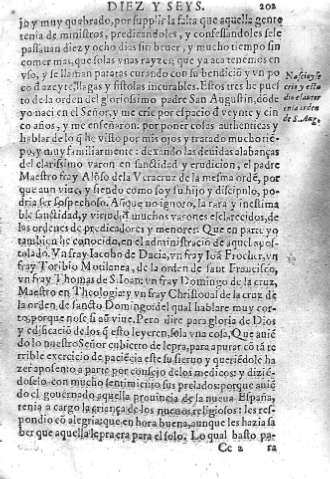 DIEZ Y SEYS. 202
jo y muy quebrado, por suplir la falta que aquella gente
tenia de ministros, predicandoles, y confessandoles se le
passauan diez y ocho dias sin beuer, y mucho tiempo sin
comer mas, que solas vnas rayzes, que ya aca tenemos en
vso, y se llaman patatas curando con su bendiciõ y vn po
co d azeyte, llagas y fistolas incurables. Estos tres he pues
to de la orden del gloriosissimo padre San Augustin, dõde
yo naci en el Señor, y me crie por espacio d veynte y cin
co años, y me enseñaron: por poner cosas authenticas y
hablar de lo q̃ he visto por mis ojos y tratado mucho tiẽ
po, y muy familiarmente: dexando las deuidas alabanças
del clarissimo varon en sanctidad y erudicion, el padre
Maestro fray Alõso dela Veracruz de la mesma ordẽ, por
que aun viue, y siendo como soy su hijo y discipulo, po
dria ser sospechoso. Aũque no ignoro, la rara y inestima
ble sanctidad, y virtud d muchos varones esclarecidos, de
las ordenes de predicadores y menores: Que en parte yo
tambien he conocido, en el administracio de aquel apos
tolado. Vn fray Iacobo de Dacia, vn fray Ioã Frocher, vn
fray Toribio Motilanea, de la orden de sant Francisco,
vn fray Thomas de S. Ioan: vn fray Domingo de la cruz,
Maestro en Theologia: y vn fray Christoual de la cruz de
la orden de sancto Domingo del qual hablare muy cor-
to, porque no se si aũ viue. Pero dire para gloria de Dios
y edificaciõ de los q̃ esto leyeren, sola vna cosa, Que auiẽ
do lo nuestro Señor cubierto de lepra, para apurar cõ tã te
rrible exercicio de paciẽcia este su sieruo, y queriẽdole ha
zer aposento a parte por consejo de los medicos: y diziẽ-
doselo con mucho sentimiẽto sus prelados: porque auiẽ
do el gouernado aquella prouincia de la nueua España,
tenia a cargo la criança de los nueuos religiosos: les res-
pondio cõ alegria: que en hora buena, aunque les hazia sa
ber que aquella lepra era para el solo. Lo qual basto pa-
Cc 2 ra
Naciay se
crio y estu
dio el autor
en la orden
de S. Aug.